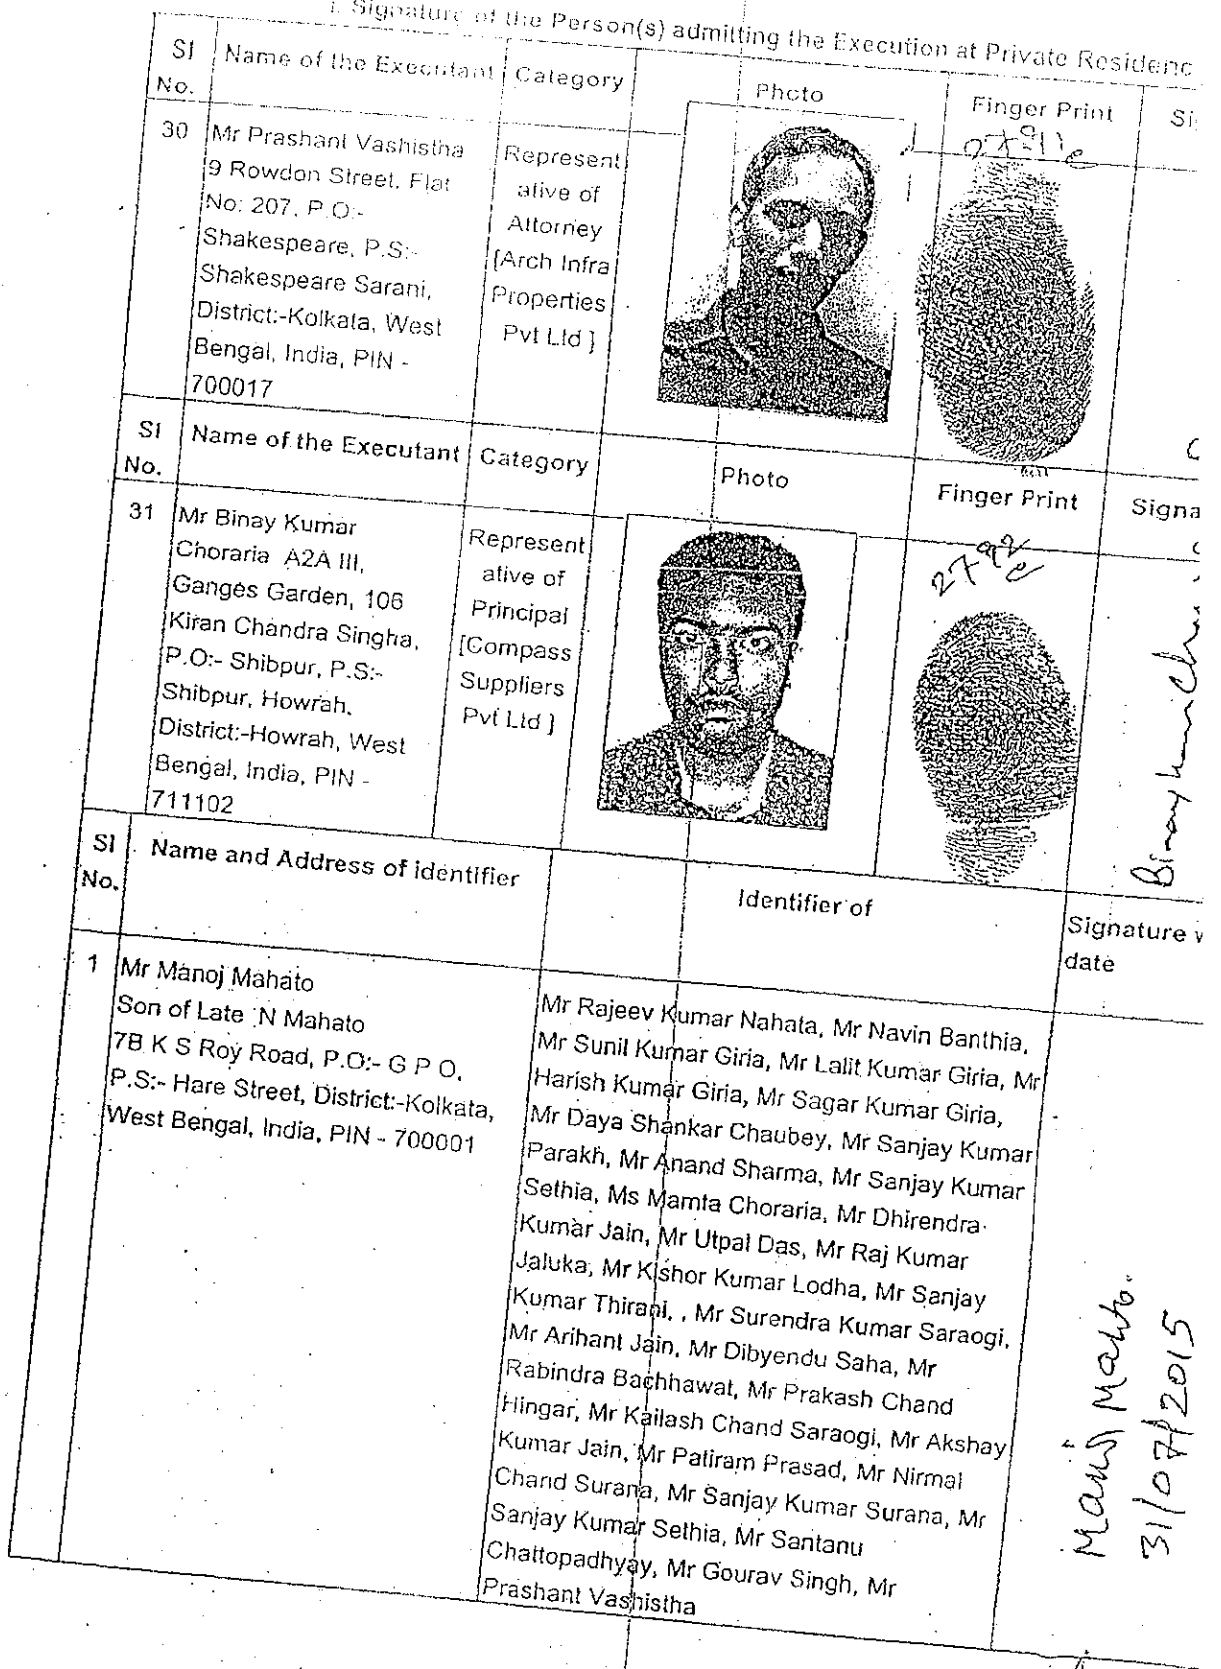 i. Signature of the Person(s) admitting the Execution at Private Residenc
Sl No. Name of the Executant Category Photo Finger Print Si
30 Mr Prashant Vashistha
9 Rowdon Street, Flat
No: 207, P.O:-
Shakespeare, P.S:-
Shakespeare Sarani,
District:-Kolkata, West
Bengal, India, PIN -
700017
Represent
ative of
Attorney
[Arch Infra
Properties
Pvt Ltd ]
Sl No. Name of the Executant Category Photo Finger Print Signa
31 Mr Binay Kumar
Choraria A2A III,
Ganges Garden, 106
Kiran Chandra Singha,
P.O:- Shibpur, P.S:-
Shibpur, Howrah,
District:-Howrah, West
Bengal, India, PIN -
711102
Represent
ative of
Principal
[Compass
Suppliers
Pvt Ltd ]
2792
Binay
Sl No. Name and Address of identifier Identifier of Signature
date
1 Mr Manoj Mahato
Son of Late N Mahato
7B K S Roy Road, P.O:- G P O,
P.S:- Hare Street, District:-Kolkata,
West Bengal, India, PIN - 700001
Mr Rajeev Kumar Nahata, Mr Navin Banthia,
Mr Sunil Kumar Giria, Mr Lalit Kumar Giria, Mr
Harish Kumar Giria, Mr Sagar Kumar Giria,
Mr Daya Shankar Chaubey, Mr Sanjay Kumar
Parakh, Mr Anand Sharma, Mr Sanjay Kumar
Sethia, Ms Mamta Choraria, Mr Dhirendra
Kumar Jain, Mr Utpal Das, Mr Raj Kumar
Jaluka, Mr Kishor Kumar Lodha, Mr Sanjay
Kumar Thirani, , Mr Surendra Kumar Saraogi,
Mr Arihant Jain, Mr Dibyendu Saha, Mr
Rabindra Bachhawat, Mr Prakash Chand
Hingar, Mr Kailash Chand Saraogi, Mr Akshay
Kumar Jain, Mr Patiram Prasad, Mr Nirmal
Chand Surana, Mr Sanjay Kumar Surana, Mr
Sanjay Kumar Sethia, Mr Santanu
Chattopadhyay, Mr Gourav Singh, Mr
Prashant Vashistha
Manoj Mahto.
31/07/2015